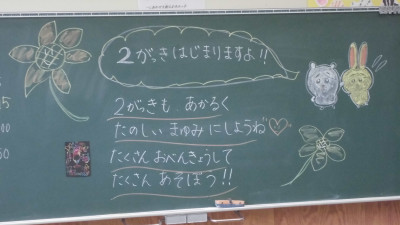 2がっきはじまりますよ!!
2がっきも あかるく
たのしい まゆみ にしようね
たくさん おべんきょうして
たくさん あそぼう!!